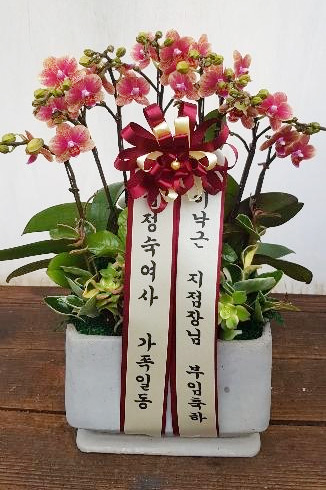 정숙여사 가족일동
낙근 지점장님 부임축하